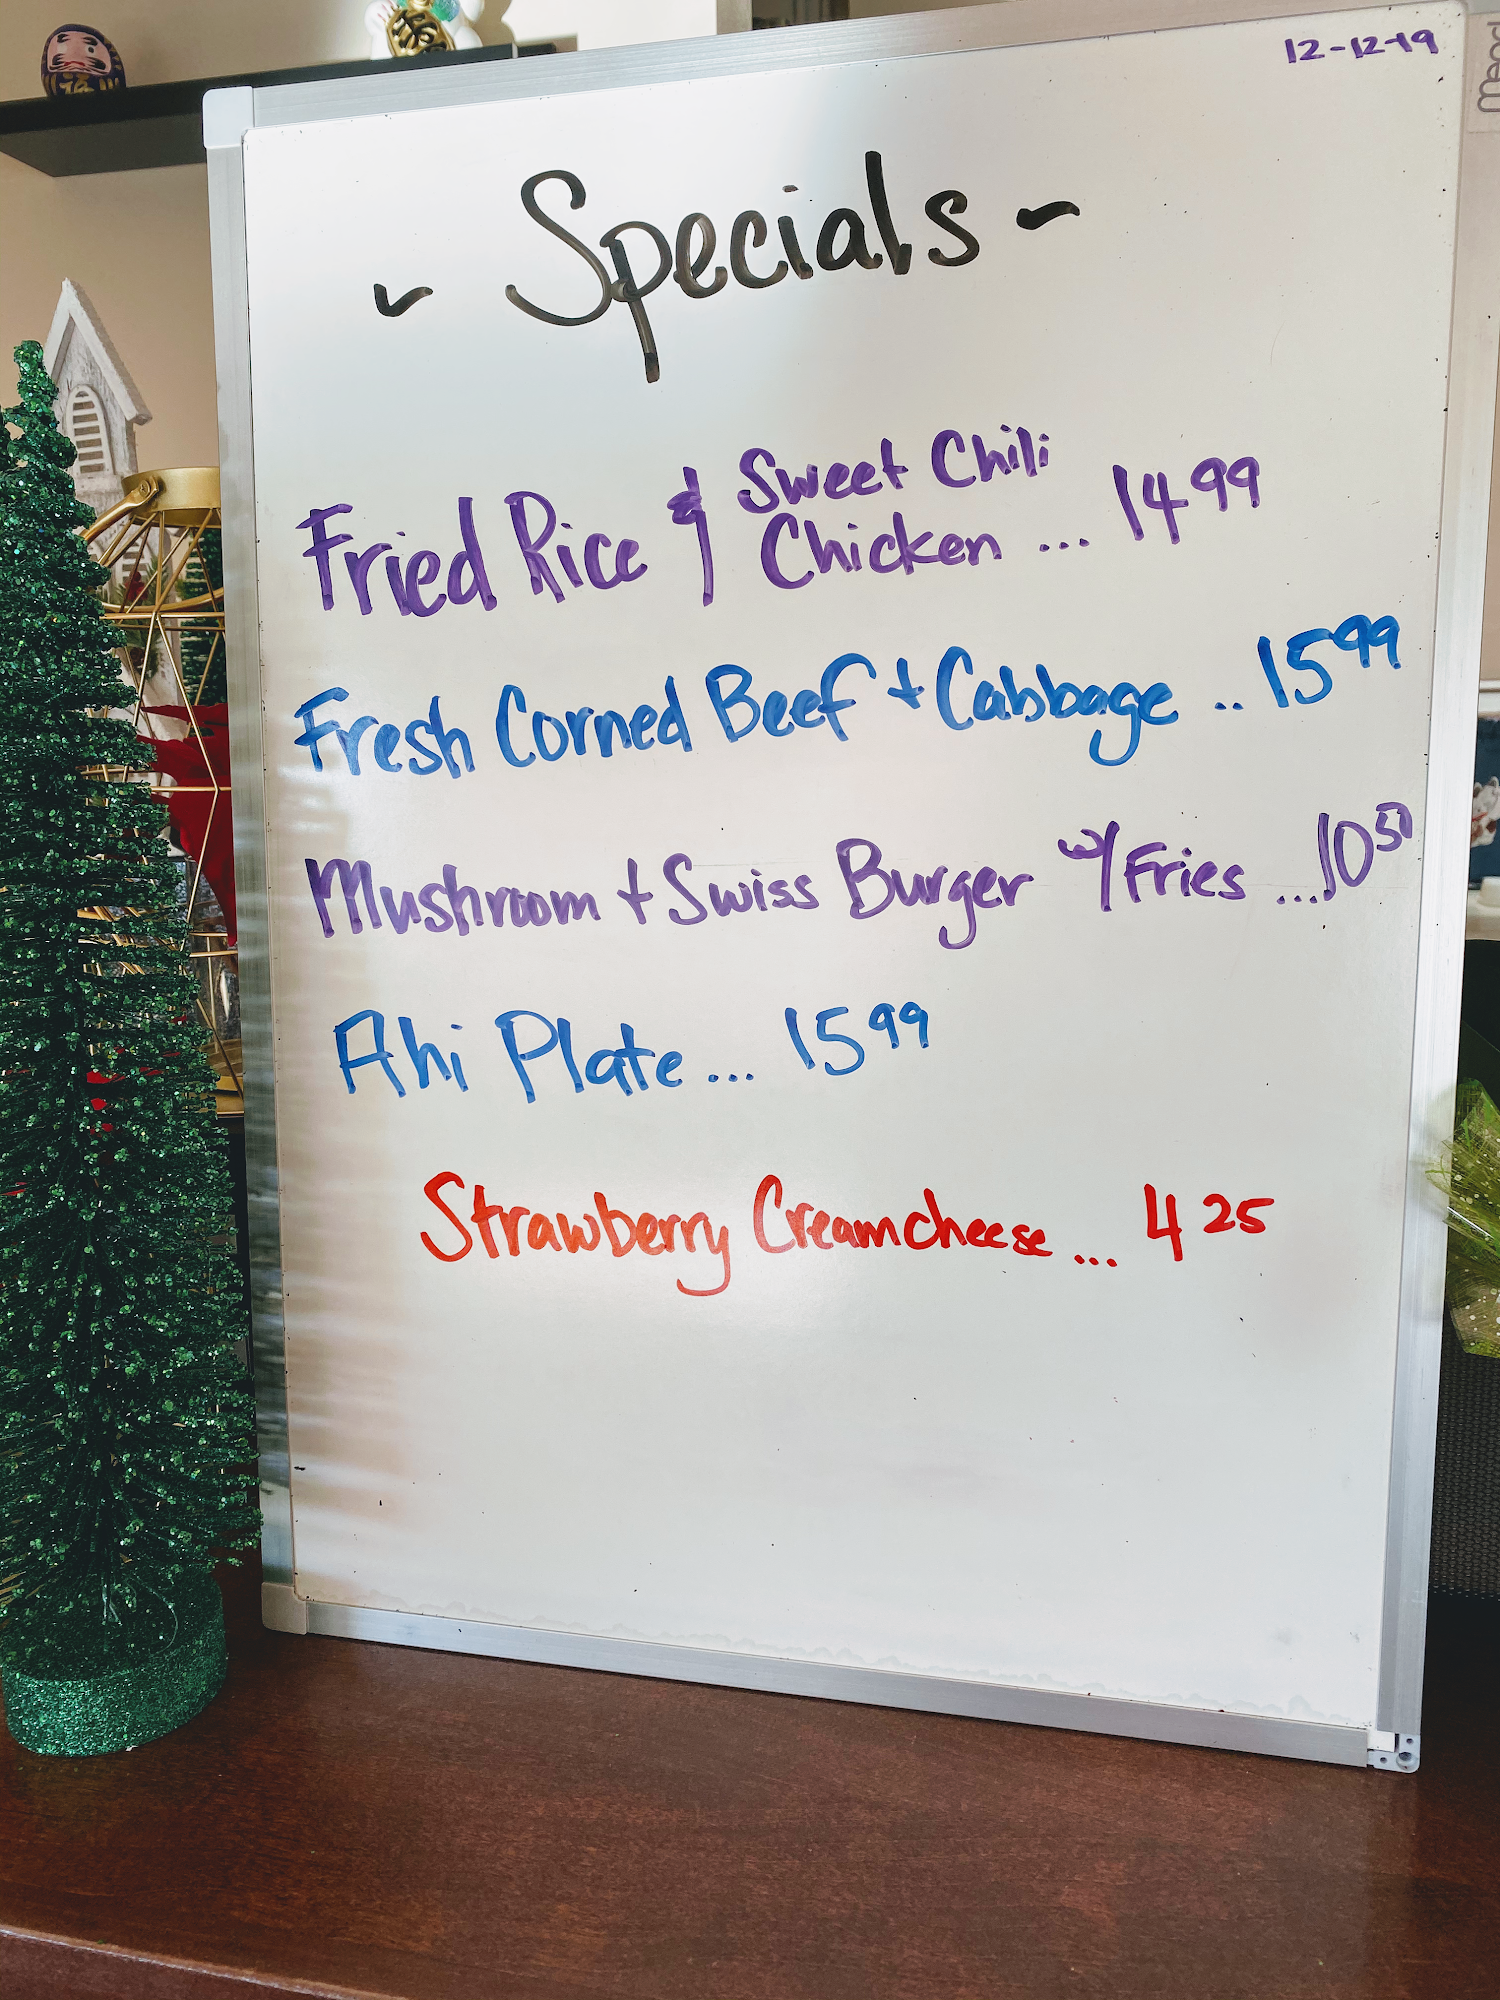 12-12-19
~ Specials ~
Fried Rice & Sweet Chili
Chicken ... 14 99
Fresh Corned Beef + Cabbage .. 15 99
Mushroom + Swiss Burger w/ Fries ... 10 50
Ahi Plate ... 15 99
Strawberry Creamcheese ... 4 25
Mead